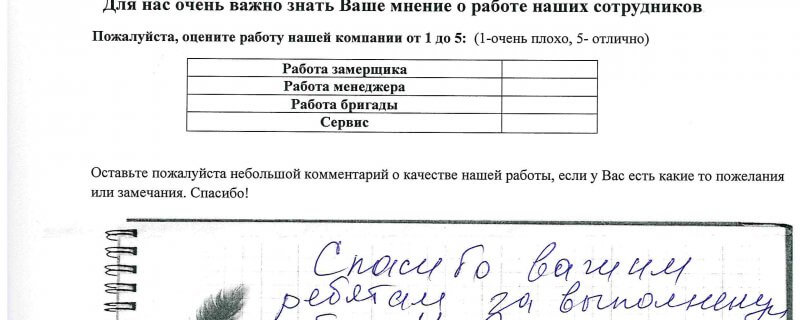 Для нас очень важно знать Ваше мнение о работе наших сотрудников
Пожалуйста, оцените работу нашей компании от 1 до 5: (1-очень плохо, 5- отлично)
Работа замерщика
Работа менеджера
Работа бригады
Сервис
Оставьте пожалуйста небольшой комментарий о качестве нашей работы, если у Вас есть какие то пожелания
или замечания. Спасибо!
Спасибо вашим
ребятам за выполнену